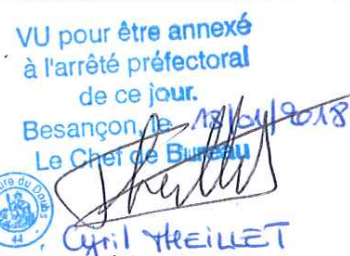 VU pour être annexé
à l'arrêté préfectoral
de ce jour.
Besançon, le 18/01/2018
Le Chef de Bureau
ure du Doubs
44
Cyril THEILLET